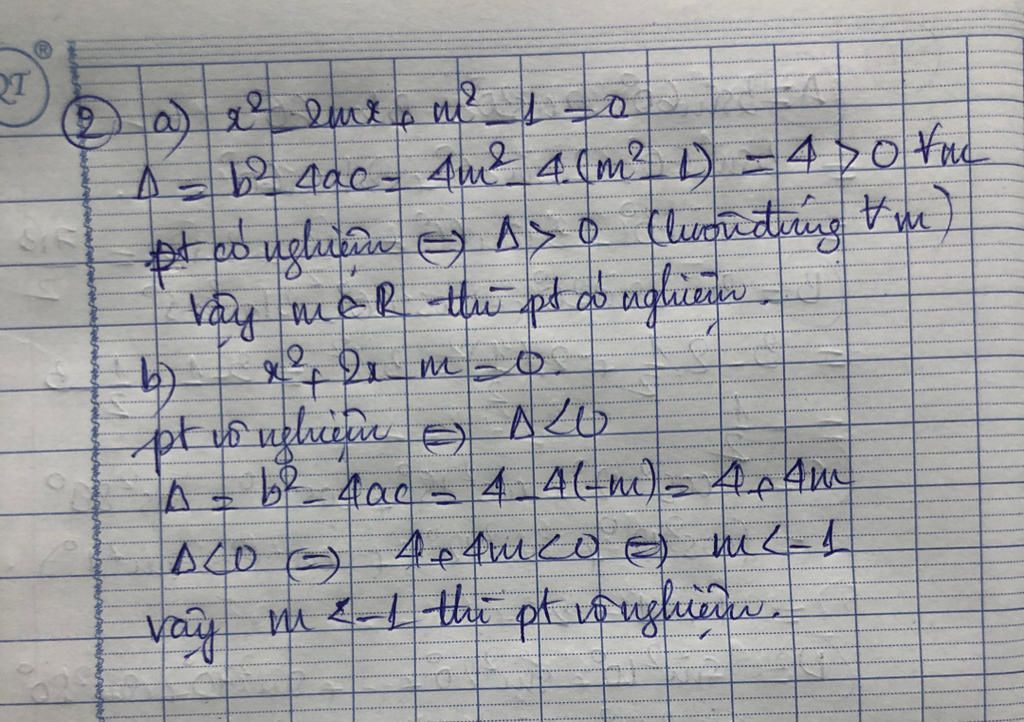 QT ®
② a) x² - 2mx + m² - 1 = 0
Δ = b² - 4ac = 4m² - 4.(m² - 1) = 4 > 0 ∀m
pt có nghiệm ⇔ Δ > 0 (luôn đúng ∀m)
Vậy m ∈ R thì pt có nghiệm.
b) x² + 2x - m = 0.
pt vô nghiệm ⇔ Δ < 0
Δ = b² - 4ac = 4 - 4(-m) = 4 + 4m
Δ < 0 ⇔ 4 + 4m < 0 ⇔ m < -1
Vậy m < -1 thì pt vô nghiệm.